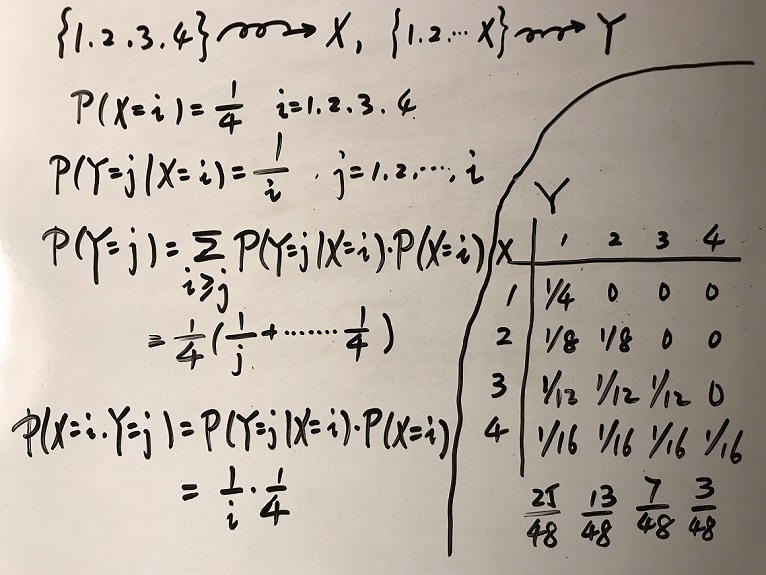 {1.2.3.4} → X, {1.2...X} → Y
P(X=i)=1/4 i=1.2.3.4
P(Y=j|X=i)=1/i . j=1.2.....,i
P(Y=j)=Σ P(Y=j|X=i)·P(X=i)
i≥j
=1/4(1/j+.......1/4)
P(X=i.Y=j)=P(Y=j|X=i)·P(X=i)
=1/i·1/4
Y
X 1 2 3 4
1 1/4 0 0 0
2 1/8 1/8 0 0
3 1/12 1/12 1/12 0
4 1/16 1/16 1/16 1/16
25/48 13/48 7/48 3/48